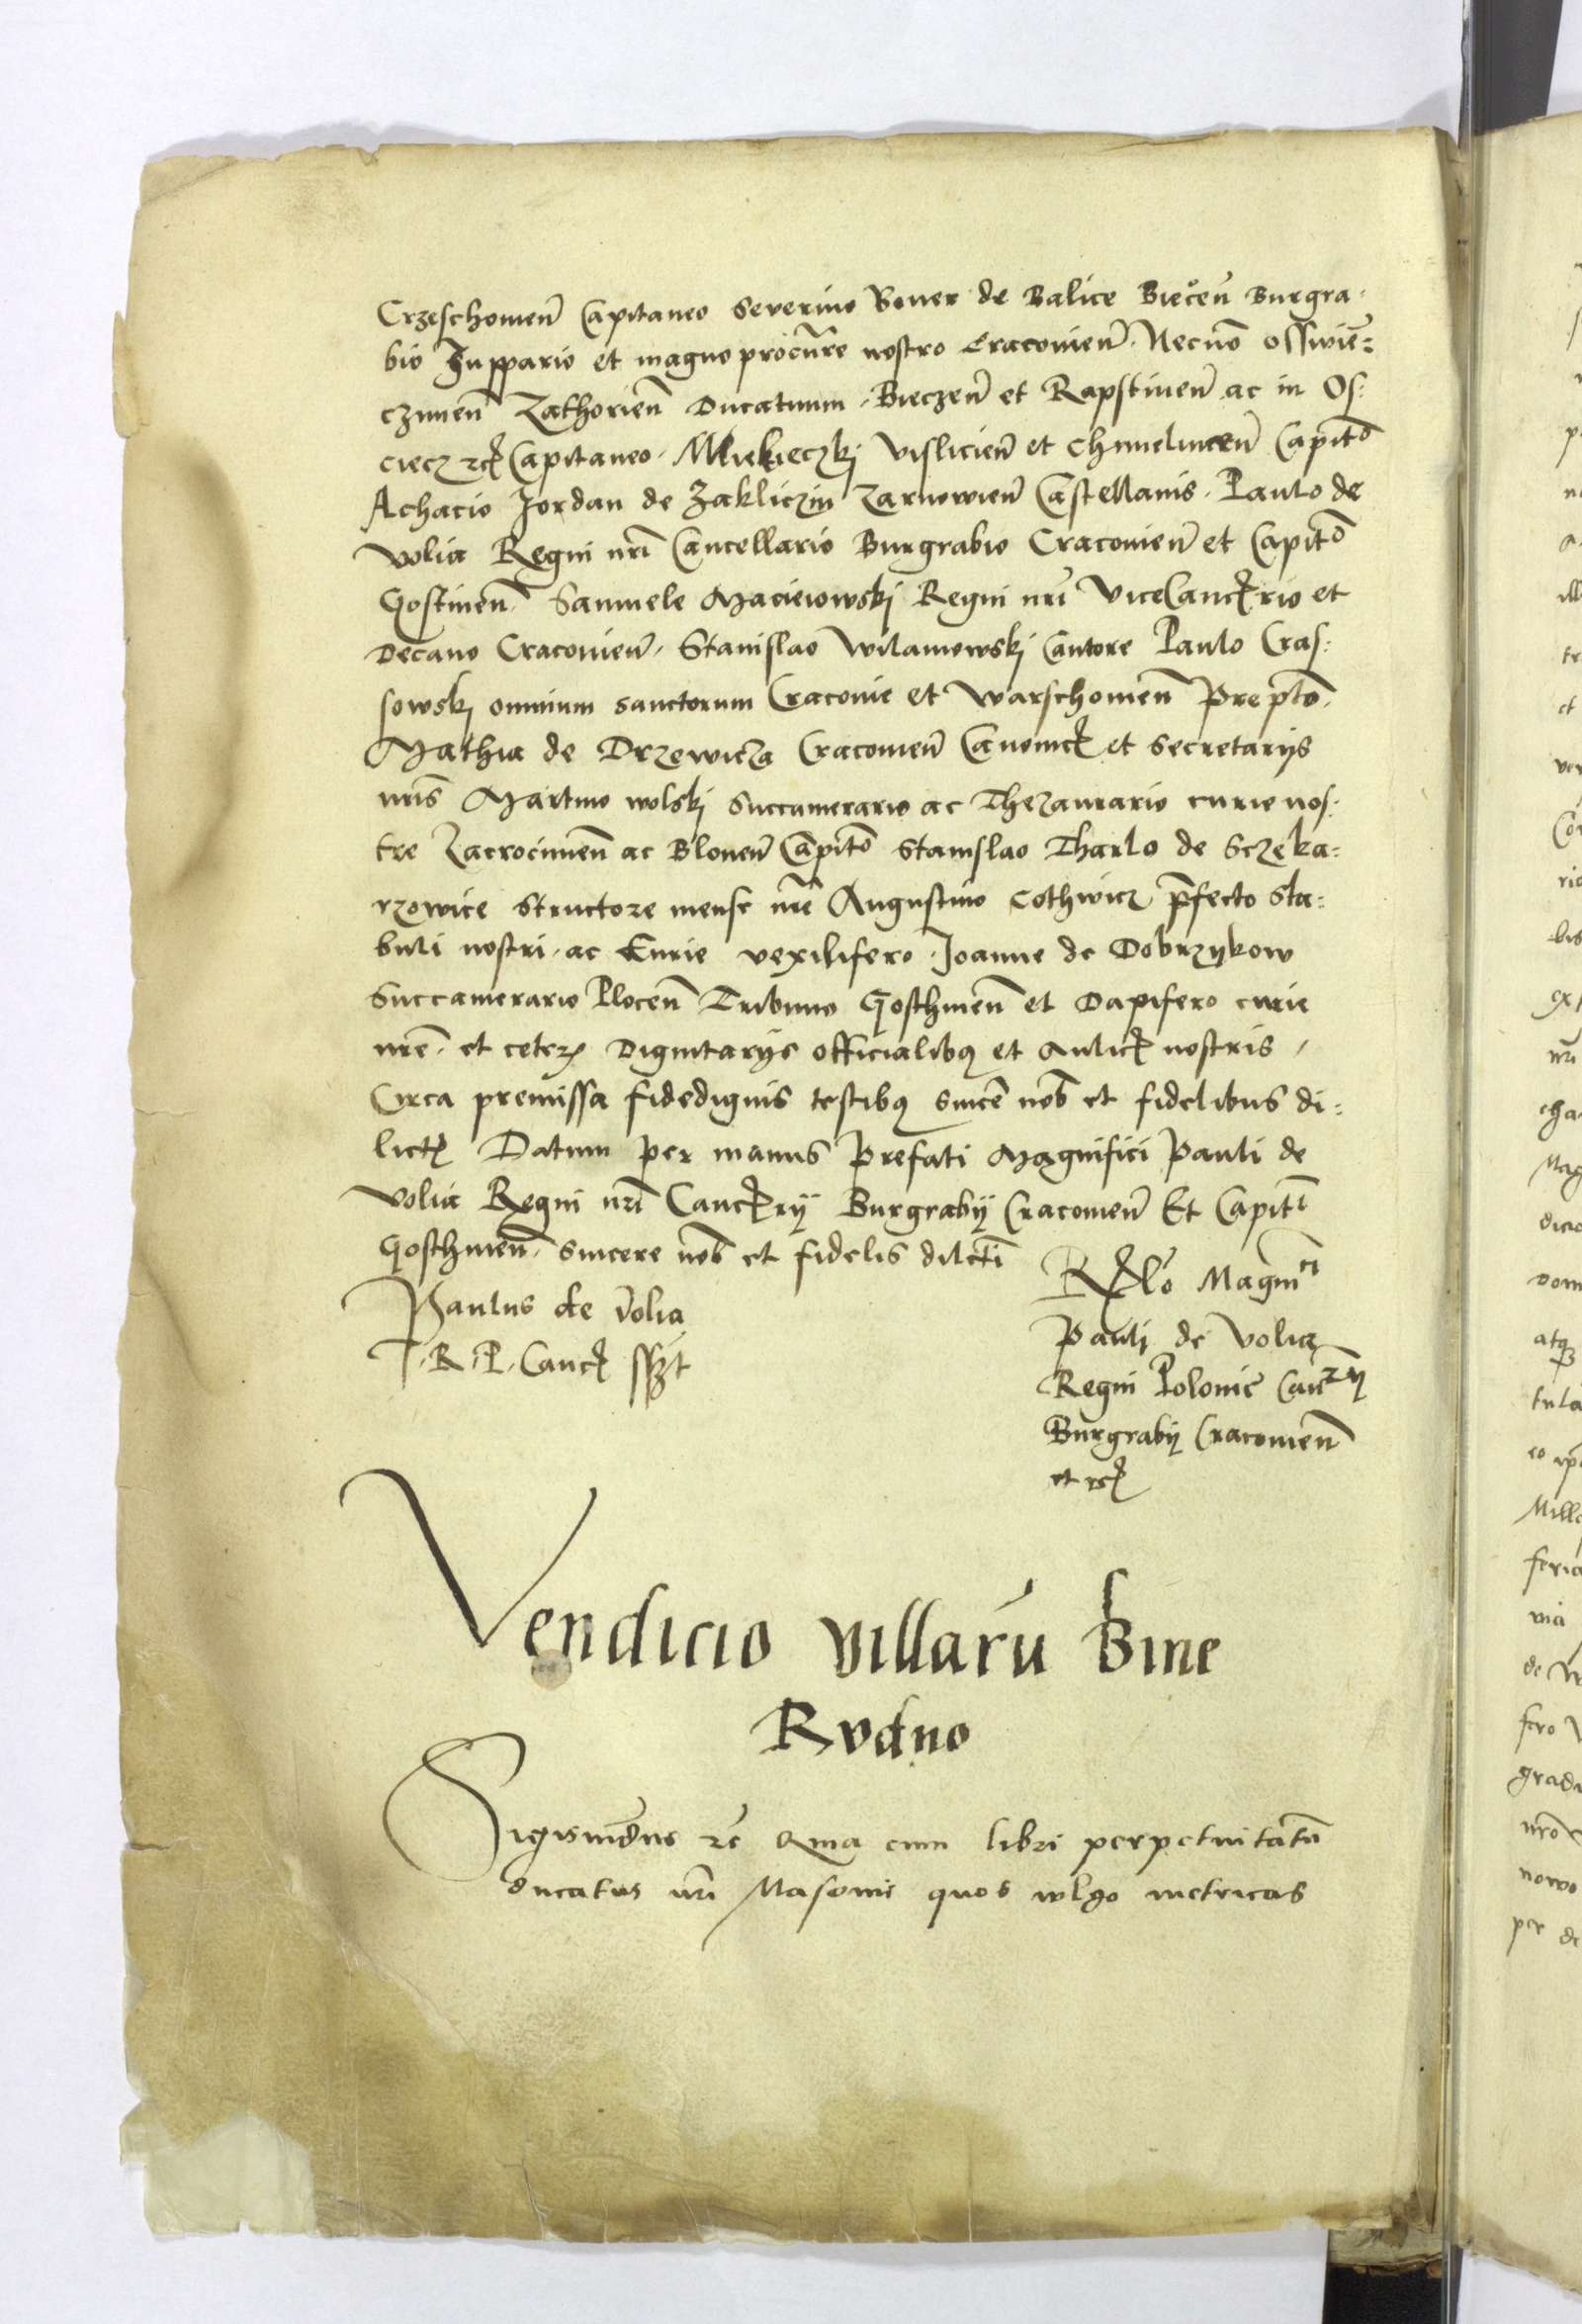 Crzeschowien̄ Capitaneo Severino Boner de Balice Biecen̄ Burgra-
bio Zuppario et magno procūre nostro Cracovien̄. Necnō Osswiē-
czimen̄ Zathorien̄ Ducatuum. Bieczen̄ et Rapstinen̄ ac in Os-
ciecz etc̄ Capitaneo. Mlieieczkj Vislicien̄ et Chmielincen̄ Capitō
Achacio Jordan de Zakliczin Zarnowien̄ Castellanis. Paulo de
Volia Regni nr̄i Cancellario Burgrabio Cracovien̄ et Capitō
Gostinen̄. Samuele Macieiowskj Regni nr̄i ViceCanc̄rio et
Decano Cracovien̄. Stanislao Wilamowskj Cantore Paulo Cras-
sowskj omnium sanctorum Cracovie et Warschowien̄ Prep̄to.
Mathia de Drzewicza Cracovien̄ Canonic̄ et secretarijs
nr̄is Martino Wolskj Succamerario ac Thezaurario curie nos-
tre Zacrocimen̄ ac Blonen̄ Capitō Stanislao Tharlo de Sczeka-
rzowice structore mense nr̄e Augustino Cothwicz p̄fecto sta-
buli nostri. ac Curie vexilifero. Joanne de Dobrzykow
Succamerario Plocen̄ Tribuno Gosthinen̄ et Dapifero curie
nr̄e. et ceterꝫ Dignitarijs officialibꝫ et aulic̄ nostris
Circa premissa fidedignis testibꝫ sincē nob̄ et fidelibus di-
lectꝫ Datum per manus Prefati Magnifici Pauli de
Volia Regni nr̄i Canc̄rij Burgrabij Cracovien̄ Et Capitī
Gosthinen̄. sincere nob̄ et fidelis dilecti
Paulus de Volia
R. P. Canc̄ sszt
Rlō Magnici
Pauli de Volia
Regni Polonie Can̄rij
Burgrabij Cracovien̄
et etc̄
Vendicio villarū Bine
Rvdno
Sigismūdus etc̄ Quia cum libri perpetuitatū
ducatus nr̄i Masovie quos wlgo metricas